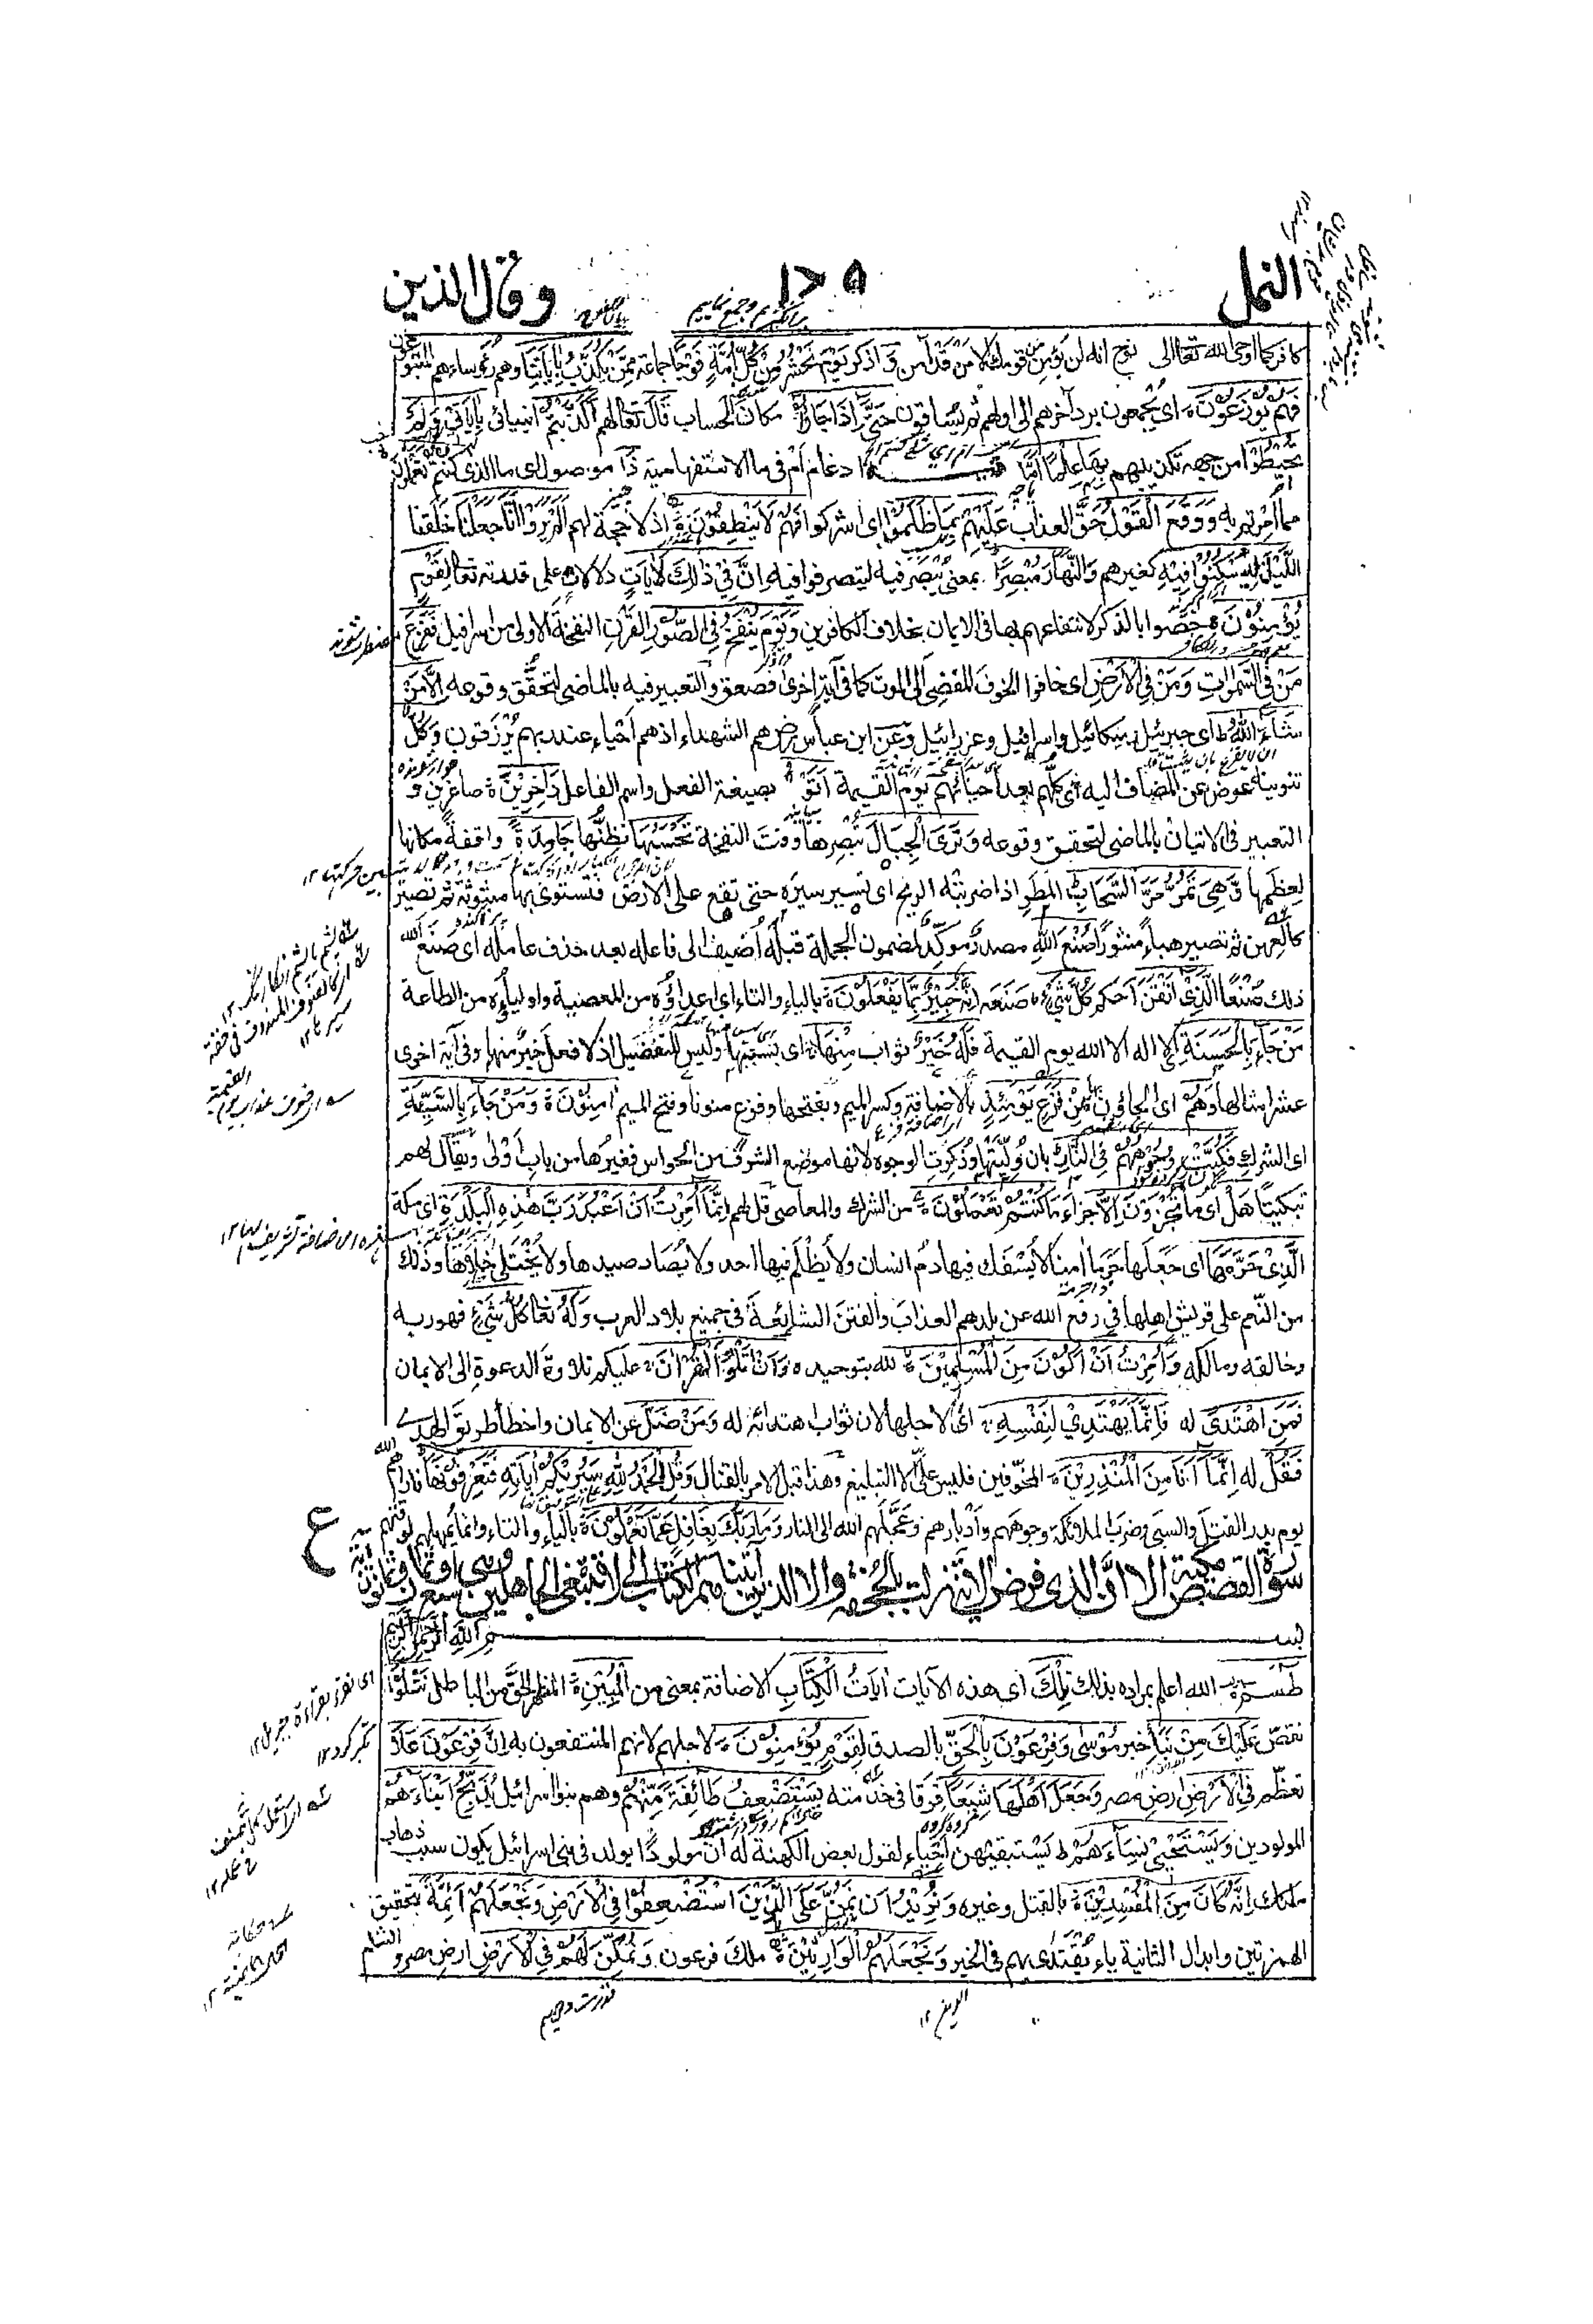 النمل
وقال الذين
كافر كما اوحى الله تعالى الى نوح انه لن يؤمن من قومك الا من قد آمن وَ اذكر يَوْمَ نَحْشُرُ مِنْ كُلِّ أُمَّةٍ فَوْجًا جماعة مِمَّنْ يُكَذِّبُ بِآيَاتِنَا وهم رؤساءهم المتبوعون
فَهُمْ يُوْزَعُوْنَ اى يجمعون برد آخرهم الى اولهم ثم يساقون حَتَّى إِذَا جَاءُوْا مكان الحساب قَالَ تعالى لهم أَكَذَّبْتُمْ انبيائى بِآيَاتِيْ وَلَمْ
تُحِيْطُوْا من جهة تكذيبهم بِهَا عِلْمًا أَمَّا فيه ادغام أم فى ما الاستفهامية ذَا موصول اى ما الذى كُنْتُمْ تَعْمَلُوْنَ
مما امرتم به وَوَقَعَ الْقَوْلُ حق العذاب عَلَيْهِمْ بِمَا ظَلَمُوْا اى اشركوا فَهُمْ لَا يَنْطِقُوْنَ اذ لا حجة لهم أَلَمْ يَرَوْا أَنَّا جَعَلْنَا خلقنا
اللَّيْلَ لِيَسْكُنُوْا فِيْهِ كغيرهم وَالنَّهَارَ مُبْصِرًا بمعنى يبصر فيه ليتصرفوا فيه إِنَّ فِيْ ذٰلِكَ لَآيَاتٍ دلالات على قدرته تعالى لِقَوْمٍ
يُؤْمِنُوْنَ خصوا بالذكر لانتفاعهم بها فى الايمان بخلاف الكافرين وَيَوْمَ يُنْفَخُ فِي الصُّوْرِ القرن النفخة الاولى من اسرافيل فَفَزِعَ
مَنْ فِي السَّمٰوَاتِ وَمَنْ فِي الْأَرْضِ اى خافوا الخوف المفضى الى الموت كما فى آية اخرى فصعق والتعبير فيه بالماضى لتحقق وقوعه إِلَّا مَنْ
شَاءَ اللهُ اى جبرئيل وميكائيل واسرافيل وعزرائيل وعن ابن عباس رض هم الشهداء اذ هم احياء عند ربهم يرزقون وَكُلٌّ
تنوينه عوض عن المضاف اليه اى كلهم بعد احيائهم يوم القيمة أَتَوْهُ بصيغة الفعل واسم الفاعل دَاخِرِيْنَ صاغرين و
التعبير فى الاتيان بالماضى لتحقق وقوعه وَتَرَى الْجِبَالَ تبصرها وقت النفخة تَحْسَبُهَا تظنها جَامِدَةً واقفة مكانها
لعظمها وَهِيَ تَمُرُّ مَرَّ السَّحَابِ المطر اذا ضربته الريح اى تسير سيره حتى تقع على الارض فتستوى بها مبثوثة ثم تصير
كالعهن ثم تصير هباء منثورا صُنْعَ اللهِ مصدر مؤكد لمضمون الجملة قبله اضيف الى فاعله بعد حذف عامله اى صنع الله
ذلك صنعا الَّذِيْ أَتْقَنَ احكم كُلَّ شَيْءٍ صنعه إِنَّهُ خَبِيْرٌ بِمَا يَفْعَلُوْنَ بالياء والتاء اى اعداؤه من المعصية واولياؤه من الطاعة
مَنْ جَاءَ بِالْحَسَنَةِ اى لا اله الا الله يوم القيمة فَلَهُ خَيْرٌ ثواب مِنْهَا اى بسببها وليس للتفضيل اذ لا فعل خير منها وفى آية اخرى
عشر امثالها وَهُمْ اى الجاؤن بها مِنْ فَزَعٍ يَوْمَئِذٍ بالاضافة وكسر الميم وبفتحها وفزع منونا وفتح الميم آمِنُوْنَ وَمَنْ جَاءَ بِالسَّيِّئَةِ
اى الشرك فَكُبَّتْ وُجُوْهُهُمْ فِي النَّارِ بان وليتها وذكرت الوجوه لانها موضع الشرف من الحواس فغيرها من باب اولى ويقال لهم
تبكيتا هَلْ اى ما تُجْزَوْنَ إِلَّا جزاء مَا كُنْتُمْ تَعْمَلُوْنَ من الشرك والمعاصى قل لهم إِنَّمَا أُمِرْتُ أَنْ أَعْبُدَ رَبَّ هٰذِهِ الْبَلْدَةِ اى مكة
الَّذِيْ حَرَّمَهَا اى جعلها حرما آمنا لا يسفك فيها دم انسان ولا يظلم فيها احد ولا يصاد صيدها ولا يختلى خلاها وذلك
من النعم على قريش اهلها فى رفع الله عن بلدهم العذاب والفتن الشائعة فى جميع بلاد العرب وَلَهُ تعالى كُلُّ شَيْءٍ فهو ربه
وخالقه ومالكه وَأُمِرْتُ أَنْ أَكُوْنَ مِنَ الْمُسْلِمِيْنَ لله بتوحيده وَأَنْ أَتْلُوَ الْقُرْآنَ عليكم تلاوة الدعوة الى الايمان
فَمَنِ اهْتَدَى له فَإِنَّمَا يَهْتَدِيْ لِنَفْسِهِ اى لاجلها لان ثواب اهتدائه له وَمَنْ ضَلَّ عن الايمان واخطأ طريق الهدى
فَقُلْ له إِنَّمَا أَنَا مِنَ الْمُنْذِرِيْنَ المخوفين فليس على الا التبليغ وهذا قبل الامر بالقتال وَقُلِ الْحَمْدُ لِلّٰهِ سَيُرِيْكُمْ آيَاتِهِ فَتَعْرِفُوْنَهَا فاراهم الله
يوم بدر القتل والسبى وضرب الملائكة وجوههم وادبارهم وعجلهم الله الى النار وَمَا رَبُّكَ بِغَافِلٍ عَمَّا تَعْمَلُوْنَ بالياء والتاء وانما يمهلهم لوقتهم
ع
سورة القصص مكية الا ان الذى فرض الآية نزلت بالجحفة والا الذين آتيناهم الكتاب الى لا نبتغى الجاهلين وهى سبع او ثمان وثمانون آية
بسم الله الرحمن الرحيم
طٰسٓمٓ الله اعلم بمراده بذلك تِلْكَ اى هذه الآيات آيَاتُ الْكِتَابِ الاضافة بمعنى من الْمُبِيْنِ المظهر الحق من الباطل نَتْلُوْا
نقص عَلَيْكَ مِنْ نَبَإِ خبر مُوْسَى وَفِرْعَوْنَ بِالْحَقِّ بالصدق لِقَوْمٍ يُؤْمِنُوْنَ لاجلهم لانهم المنتفعون به إِنَّ فِرْعَوْنَ عَلَا
تعظم فِي الْأَرْضِ ارض مصر وَجَعَلَ أَهْلَهَا شِيَعًا فرقا فى خدمته يَسْتَضْعِفُ طَائِفَةً مِنْهُمْ وهم بنو اسرائيل يُذَبِّحُ أَبْنَاءَهُمْ
المولودين وَيَسْتَحْيِيْ نِسَاءَهُمْ يستبقيهن احياء لقول بعض الكهنة له ان مولودا يولد فى بنى اسرائيل يكون سبب ذهاب
ملكك إِنَّهُ كَانَ مِنَ الْمُفْسِدِيْنَ بالقتل وغيره وَنُرِيْدُ أَنْ نَمُنَّ عَلَى الَّذِيْنَ اسْتُضْعِفُوْا فِي الْأَرْضِ وَنَجْعَلَهُمْ أَئِمَّةً بتحقيق
الهمزتين وابدال الثانية ياء يقتدى بهم فى الخير وَنَجْعَلَهُمُ الْوَارِثِيْنَ ملك فرعون وَنُمَكِّنَ لَهُمْ فِي الْأَرْضِ ارض مصر والشام